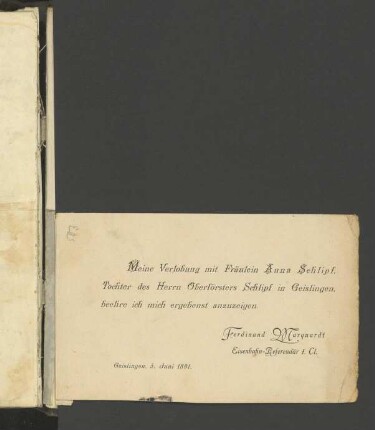 Meine Verlobung mit Fräulein Anna Schlipf,
Tochter des Herrn Oberförsters Schlipf in Geislingen,
beehre ich mich ergebenst anzuzeigen
Ferdinand Marquardt
Eisenbahn-Referendär I. Cl.
Geislingen, 5. Juni 1881.